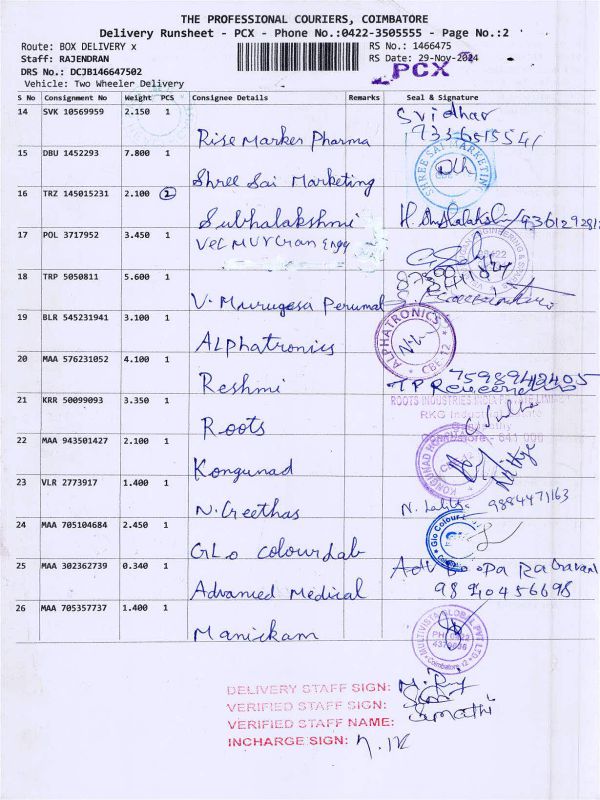 THE PROFESSIONAL COURIERS, COIMBATORE
Delivery Runsheet - PCX - Phone No.:0422-3505555 - Page No.:2
Route: BOX DELIVERY x
RS No.: 1466475
Staff: RAJENDRAN
RS Date: 29-Nov-2024
DRS No.: DCJB146647502
PCX
Vehicle: Two Wheeler Delivery
S No Consignment No Weight PCS Consignee Details Remarks Seal & Signature
14 SVK 10569959 2.150 1 Rise Marker Pharma Sridhar
7336515541
15 DBU 1452293 7.800 1 Shree Sai Marketing
SHREE SAI MARKETING
16 TRZ 145015231 2.100 2 Subhalakshmi
17 POL 3717952 3.450 1 Engg
18 TRP 5050811 5.600 1 V. Murugesa Perumal
19 BLR 545231941 3.100 1 Alphatronics
ALPHATRONICS CBE-12
20 MAA 576231052 4.100 1 Reshmi
7598942405
21 KRR 50099093 3.350 1 Roots
ROOTS INDUSTRIES INDIA PRIVATE LIMITED
RKG Industrial
Coimbatore - 641 006
22 MAA 943501427 2.100 1 Kongunad
KONGUNAD HOSPITAL
23 VLR 2773917 1.400 1 N. Greethas
9884471163
24 MAA 705104684 2.450 1 Glo colour Lab
Glo Colour
25 MAA 302362739 0.340 1 Advanced Medical
9840456698
26 MAA 705357737 1.400 1 Manickam
MULTIVISTA GLOBAL PVT LTD
Coimbatore 12
DELIVERY STAFF SIGN:
VERIFIED STAFF SIGN:
VERIFIED STAFF NAME: Sumathi
INCHARGE SIGN: